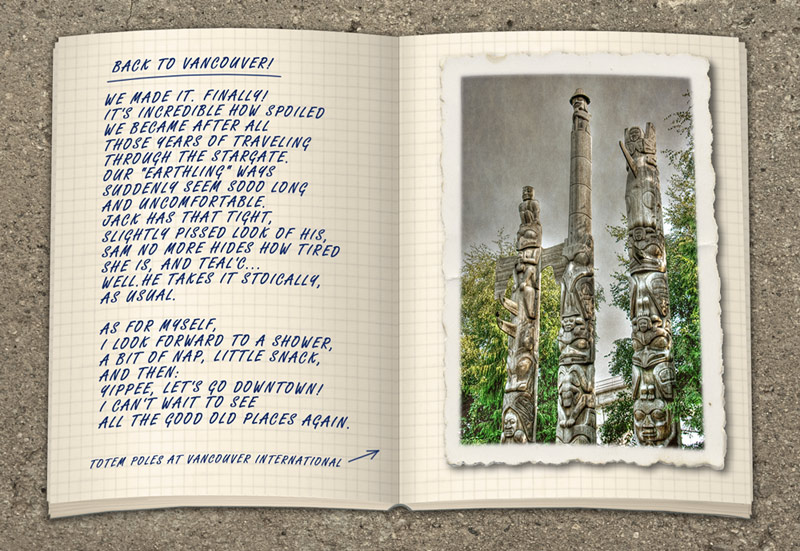 BACK TO VANCOUVER!
WE MADE IT. FINALLY!
IT'S INCREDIBLE HOW SPOILED
WE BECAME AFTER ALL
THOSE YEARS OF TRAVELING
THROUGH THE STARGATE.
OUR "EARTHLING" WAYS
SUDDENLY SEEM SOOO LONG
AND UNCOMFORTABLE.
JACK HAS THAT TIGHT,
SLIGHTLY PISSED LOOK OF HIS,
SAM NO MORE HIDES HOW TIRED
SHE IS, AND TEAL'C...
WELL.HE TAKES IT STOICALLY,
AS USUAL.
AS FOR MYSELF,
I LOOK FORWARD TO A SHOWER,
A BIT OF NAP, LITTLE SNACK,
AND THEN:
YIPPEE, LET'S GO DOWNTOWN!
I CAN'T WAIT TO SEE
ALL THE GOOD OLD PLACES AGAIN.
TOTEM POLES AT VANCOUVER INTERNATIONAL